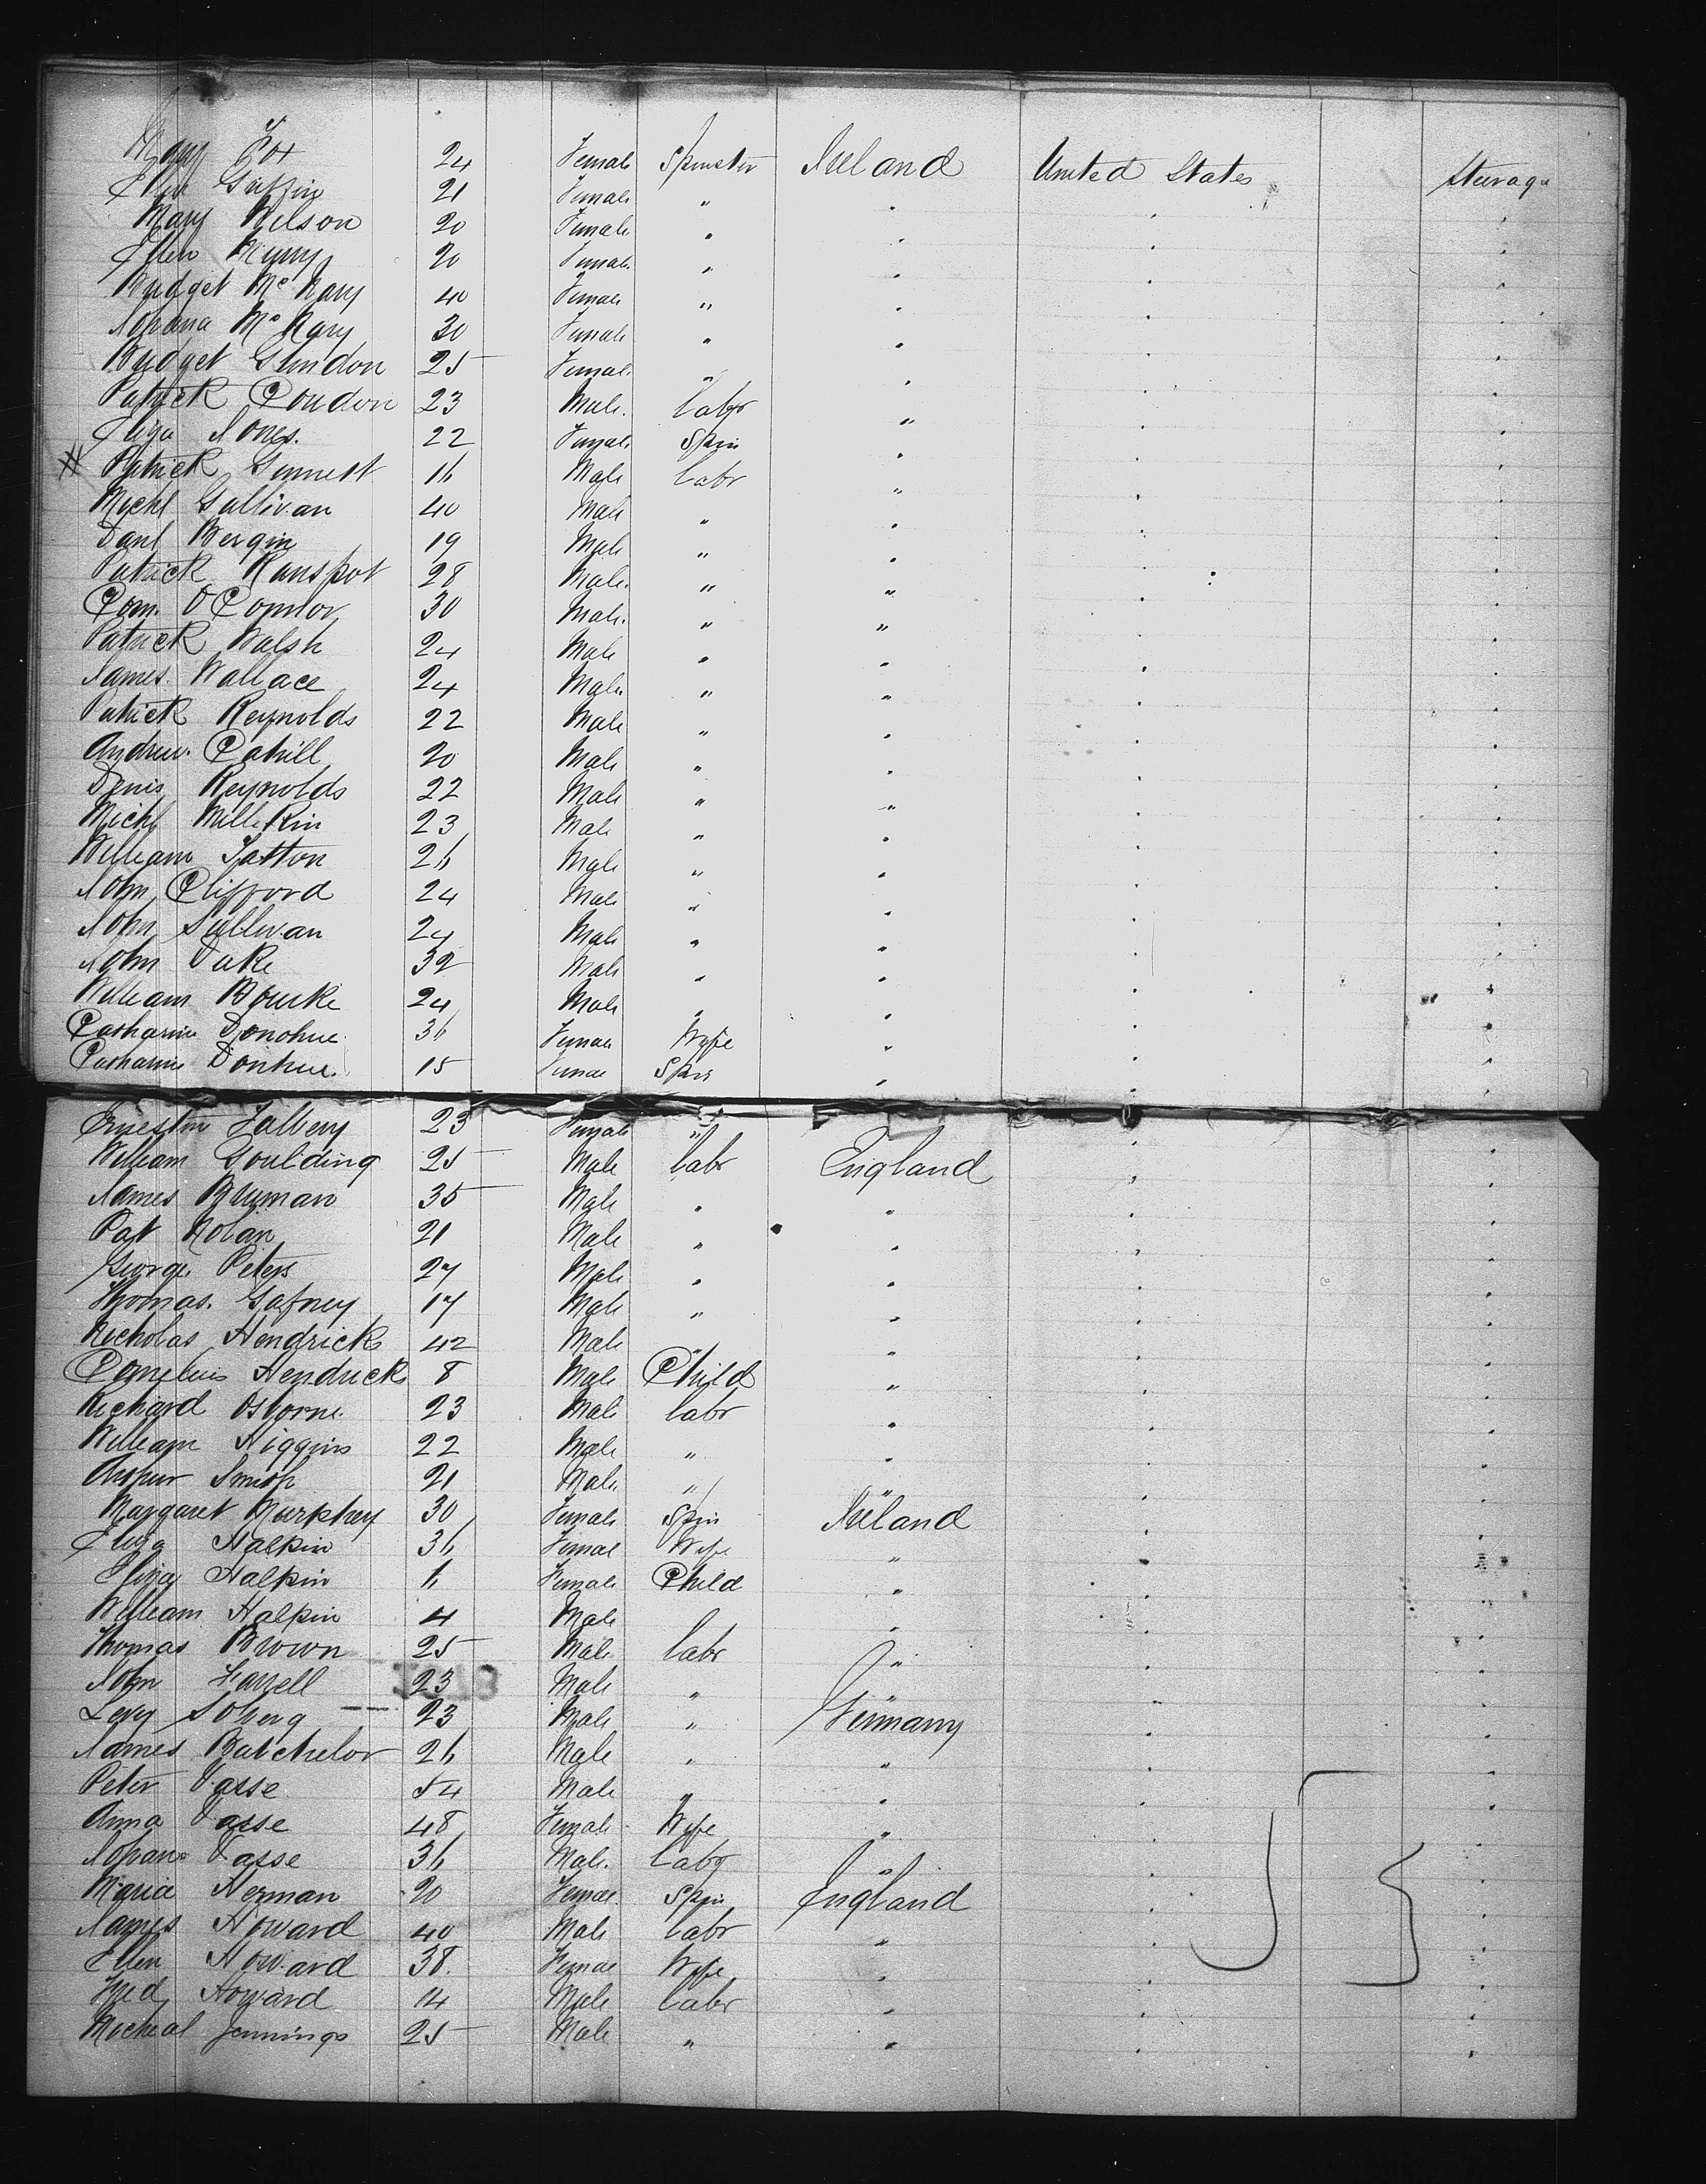 Mary Fox 24 Female Spinster Ireland United States Steerage
Ellen Griffin 21 Female "
Mary Wilson 20 Female "
Ellen 20 Female "
Bridget Mc 40 Female "
Johana Mc 30 Female "
Bridget Glendon 25 Female "
Patrick Condon 23 Male Labr "
Eliza Jones. 22 Female Spin "
Patrick 16 Male Labr "
Michl Sullivan 40 Male "
Danl Bergin 19 Male "
Patrick 28 Male "
Corn. O'Connor 30 Male "
Patrick Walsh 24 Male "
James Wallace 24 Male "
Patrick Reynolds 22 Male "
Andrew Cahill 20 Male "
Denis Reynolds 22 Male "
Michl Millikin 23 Male "
William Tatton 26 Male "
John Clifford 24 Male "
John Sullivan 24 Male "
John Duke 32 Male "
William Bourke 24 Male "
Catharine Donohue 36 Female Wife "
Catharine Donhue 15 Female Spin "
23 Female "
William Goulding 25 Male Labr England
James 35 Male "
Pat Nolan 21 Male "
George Peters 27 Male "
Thomas Gafney 17 Male "
Nicholas Hendricks 42 Male "
Cornelius Hendricks 8 Male Child "
Richard Osborne 23 Male Labr "
William Higgins 22 Male "
Arthur Smith 21 Male "
Margaret Murphey 30 Female Spin Ireland
Eliza Halpin 36 Female Wife "
Eliza Halpin 6 Female Child "
William Halpin 4 Male "
Thomas Brown 25 Male Labr "
John Farrell 23 Male "
Levy 23 Male " Germany
James Batchelor 26 Male "
Peter Vasse 54 Male "
Anna Vasse 48 Female Wife "
Johan Vasse 36 Male Labr "
Maria Herman 20 Female Spin England
James Howard 40 Male Labr "
Ellen Howard 38 Female Wife "
Fred Howard 14 Male Labr "
Micheal Jennings 25 Male "